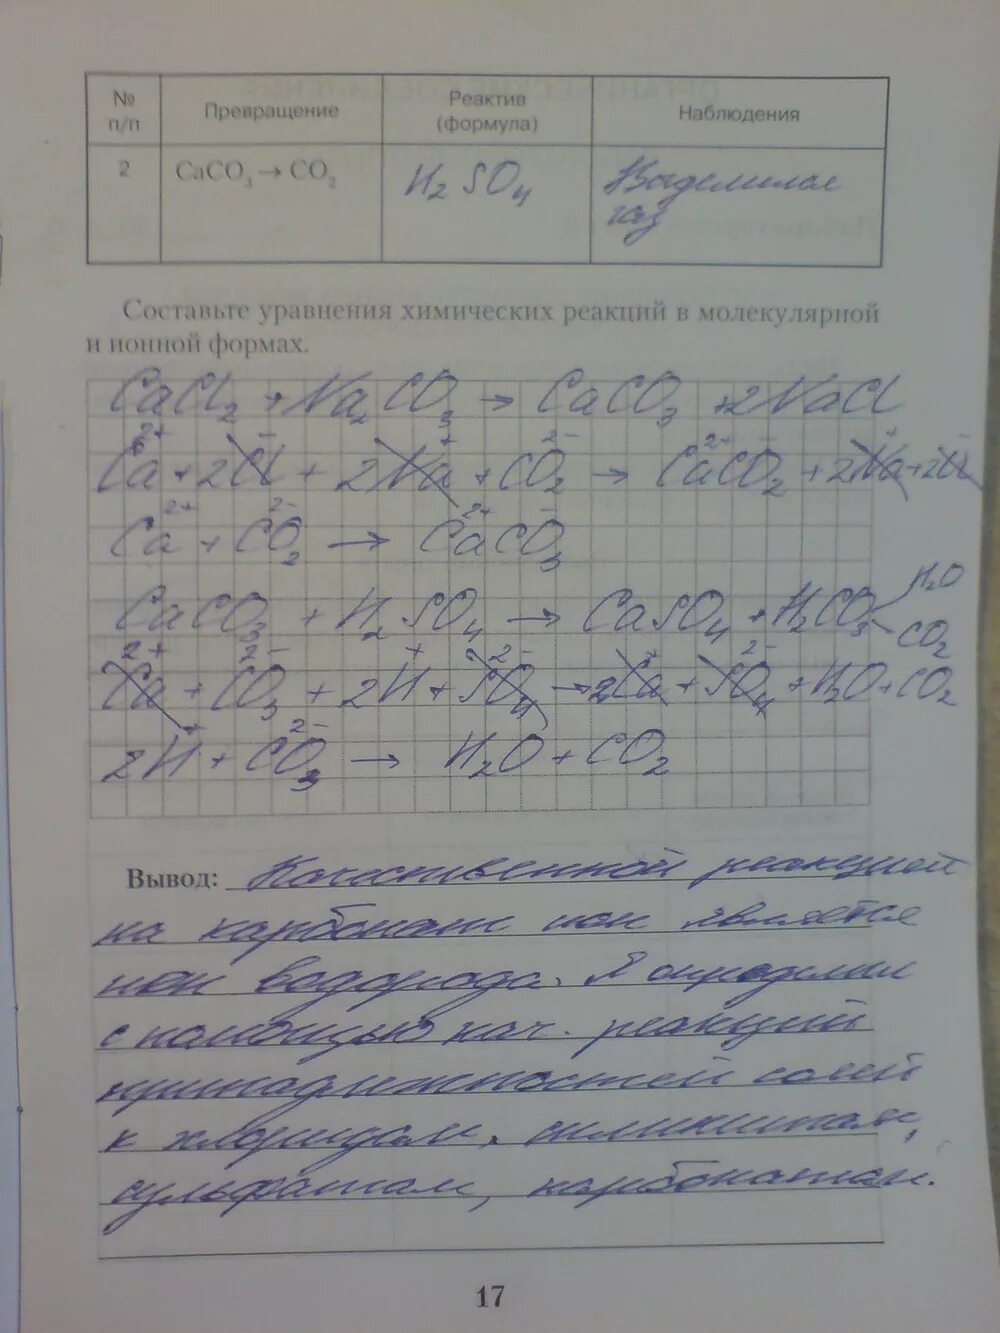 № п/п Превращение Реактив (формула) Наблюдения
2 CaCO₃ → CO₂ H₂SO₄ Выделился газ
Составьте уравнения химических реакций в молекулярной
и ионной формах.
CaCl₂ + Na₂CO₃ → CaCO₃ + 2NaCl
Ca²⁺ + 2Cl⁻ + 2Na⁺ + CO₂²⁻ → Ca²⁺CO₂⁻ + 2Na⁺ + 2Cl⁻
Ca²⁺ + CO₂²⁻ → Ca²⁺CO₃⁻
CaCO₃ + H₂SO₄ → CaSO₄ + H₂CO₃ H₂O CO₂
Ca²⁺ + CO₃²⁻ + 2H⁺ + SO₄²⁻ → 2Ca⁺ + SO₄²⁻ + H₂O + CO₂
2H⁺ + CO₃²⁻ → H₂O + CO₂
Вывод: Качественной реакцией
на карбонат ион является
ион водорода. Я определил
с помощью кач. реакций
принадлежностей солей
к хлоридам, силикатам,
сульфатам, карбонатам.
17